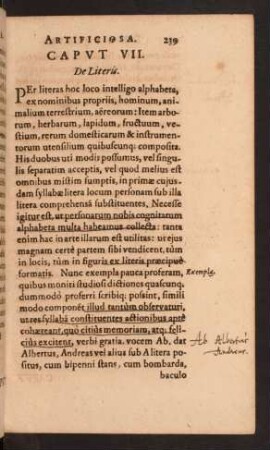 ARTIFICIOSA. 239
CAPVT VII.
De Literis.
PEr literas hoc loco intelligo alphabeta,
ex nominibus propriis, hominum, ani-
malium terrestrium, aëreorum: Item arbo-
rum, herbarum, lapidum, fructuum, ve-
stium, rerum domesticarum & instrumen-
torum utensilium quibuscunq; composita.
His duobus uti modis possumus, vel singu-
lis separatim acceptis, vel quod melius est
omnibus mistim sumptis, in primæ cujus-
dam syllabæ litera locum personam sub illa
litera comprehensâ substituentes, Necesse
igitur est ut personarum nobis cognitarum
alphabeta multa habeamus collecta: tanta
enim hac in arte illarum est utilitas: ut ejus
magnam certè partem sibi vendicent, tùm
in locis, tùm in figuris ex literis præcipuè
formatis. Nunc exempla pauca proferam, Exempla
quibus moniti studiosi dictiones quascunq;
dummodò proferri scribiq; possint, simili
modo componēt illud tantùm observaturi,
ut res syllabā constituentes actionibus aptè
cohæreant, quò citiùs memoriam, atq; feli-
ciùs excitent, verbi gratia. vocem Ab, dat
Albertus, Andreas vel alius sub A litera po-
situs, cum bipenni stans, cum bombarda,
baculo
Ab Albertus
Andreas.